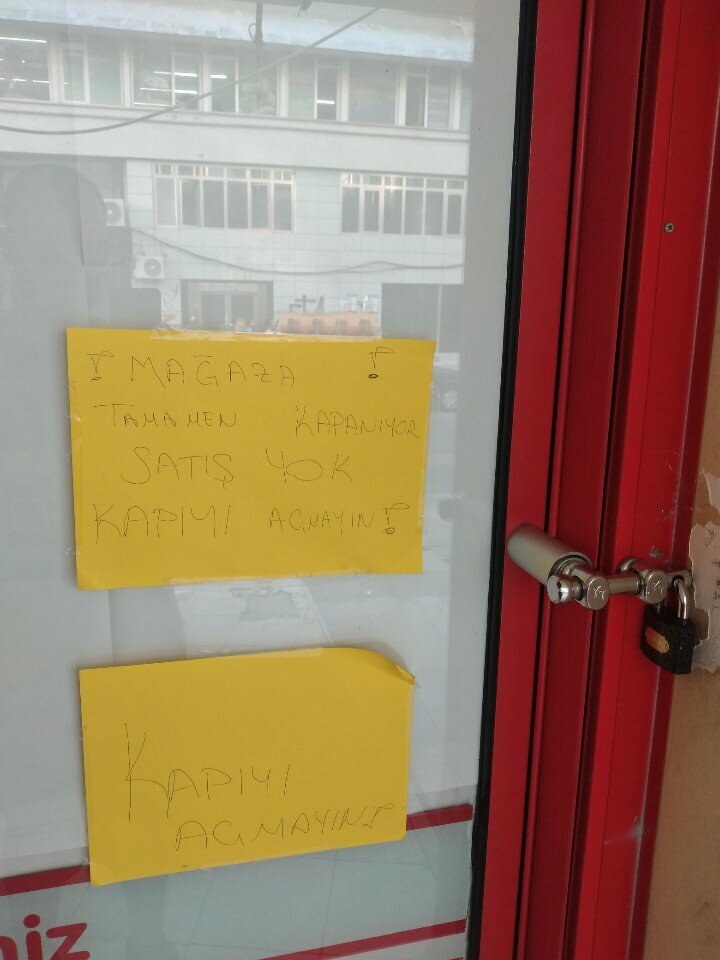 ! MAĞAZA !
TAMAMEN KAPANIYOR
SATIŞ YOK
KAPIYI AÇMAYIN!
KAPIYI
AÇMAYIN!
niz